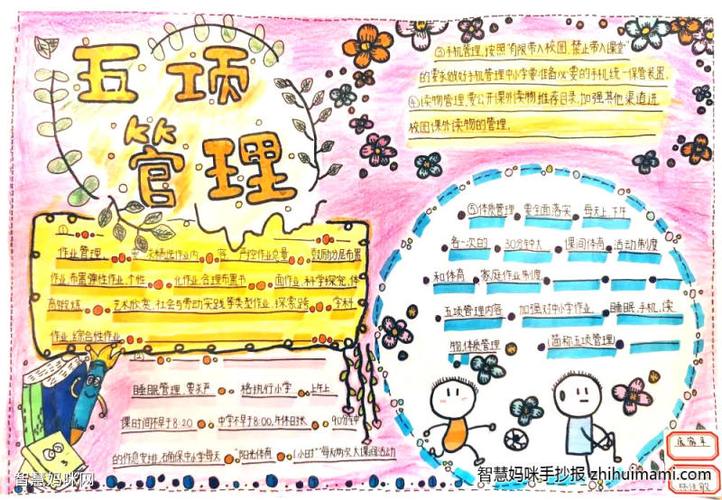 五项
管理
③手机管理,按照"有限带入校园,禁止带入课堂"
的要求做好手机管理中小学要准备
的手机统一保管装置,
④读物管理,要公开课外读物推荐目录,加强其他渠道进
校园课外读物的管理,
作业管理、
作业内
严控作业总量
鼓励分层布置
作业布置弹性作业,个性
化作业合理布置书
面作业,科学探究,体
育锻炼
艺术欣赏,社会与劳动实践等类型作业,探索跨
学科
作业,综合性作业
睡眠管理,要求严
格执行小学
上午上
课时间不早于8:20
中学不早于8:00,午休日长
90分钟
的作息安排,确保中小学每天
阳光体育
1小时"每天两次大课间活动
⑤体质管理
要全面落实
每天上、下午
各一次的
30分钟大
课间体育
活动制度
和体育
家庭作业制度
五项管理内容
加强对中小学作业
睡眠,手机,读
物,体质管理
简称五项管理
智慧妈咪网
智慧妈咪手抄报 zhihuimami.com